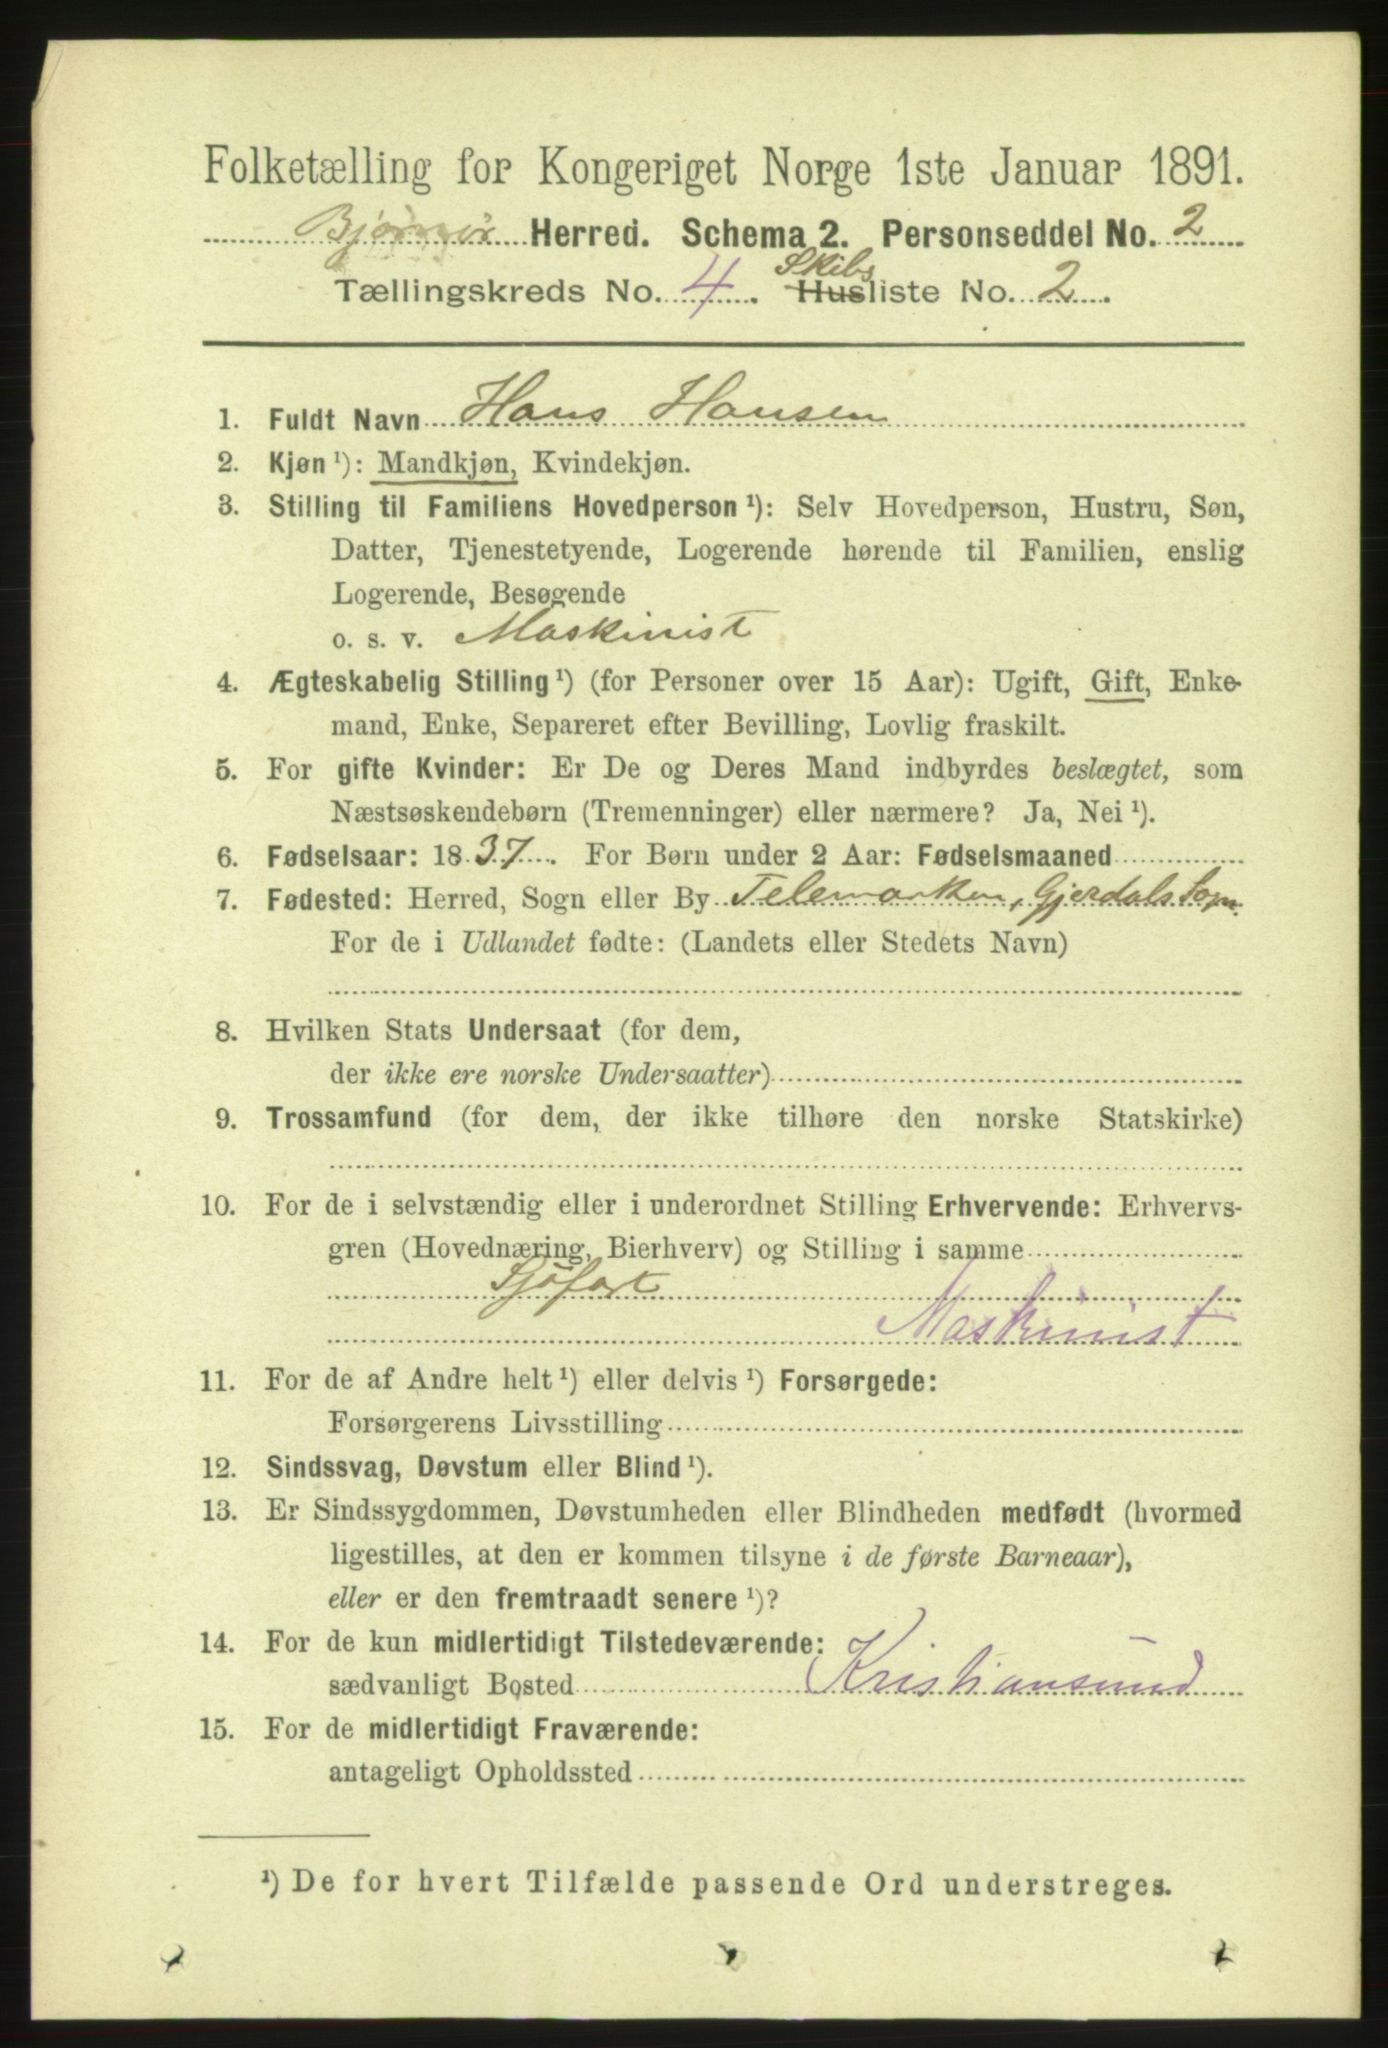 Folketælling for Kongeriget Norge 1ste Januar 1891.
Bjørnør Herred. Schema 2. Personseddel No. 2
Tællingskreds No. 4. Skibs Husliste No. 2.
1. Fuldt Navn Hans Hansen
2. Kjøn ¹): Mandkjøn, Kvindekjøn.
3. Stilling til Familiens Hovedperson ¹): Selv Hovedperson, Hustru, Søn,
Datter, Tjenestetyende, Logerende hørende til Familien, enslig
Logerende, Besøgende
o. s. v. Maskinist
4. Ægteskabelig Stilling ¹) (for Personer over 15 Aar): Ugift, Gift, Enke-
mand, Enke, Separeret efter Bevilling, Lovlig fraskilt.
5. For gifte Kvinder: Er De og Deres Mand indbyrdes beslægtet, som
Næstsøskendebørn (Tremenninger) eller nærmere? Ja, Nei ¹).
6. Fødselsaar: 1837. For Børn under 2 Aar: Fødselsmaaned
7. Fødested: Herred, Sogn eller By Telemarken, Gjerdals Sogn
For de i Udlandet fødte: (Landets eller Stedets Navn)
8. Hvilken Stats Undersaat (for dem,
der ikke ere norske Undersaatter)
9. Trossamfund (for dem, der ikke tilhøre den norske Statskirke)
10. For de i selvstændig eller i underordnet Stilling Erhvervende: Erhvervs-
gren (Hovednæring, Bierhverv) og Stilling i samme
Sjøfart
Maskinist
11. For de af Andre helt ¹) eller delvis ¹) Forsørgede:
Forsørgerens Livsstilling
12. Sindssvag, Døvstum eller Blind ¹).
13. Er Sindssygdommen, Døvstumheden eller Blindheden medfødt (hvormed
ligestilles, at den er kommen tilsyne i de første Barneaar),
eller er den fremtraadt senere ¹)?
14. For de kun midlertidigt Tilstedeværende:
sædvanligt Bosted Kristiansund
15. For de midlertidigt Fraværende:
antageligt Opholdssted
¹) De for hvert Tilfælde passende Ord understreges.